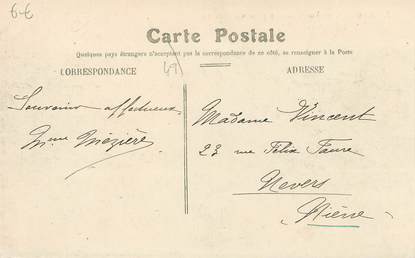 6€
Carte Postale
Quelques pays étrangers n'acceptent pas la correspondance de ce côté, se renseigner à la Poste
CORRESPONDANCE
49
ADRESSE
Souvenir affectueux
Mme Mézière
Madame Vincent
23 rue Félix Faure
Nevers
Nièvre